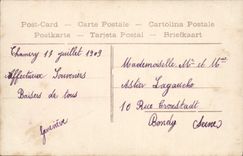 Post-Card — Carte Postale — Cartolina Postal
Postkarte — Tarjeta Postal — Briefkaart
Thamery 17 juillet 1909
Affectueux Souvenirs
Baisers de tous
Geneviève
Mademoiselle, Mr et Mme
Astier Lagauche
10 Rue Cronstadt
Bondy (Seine)